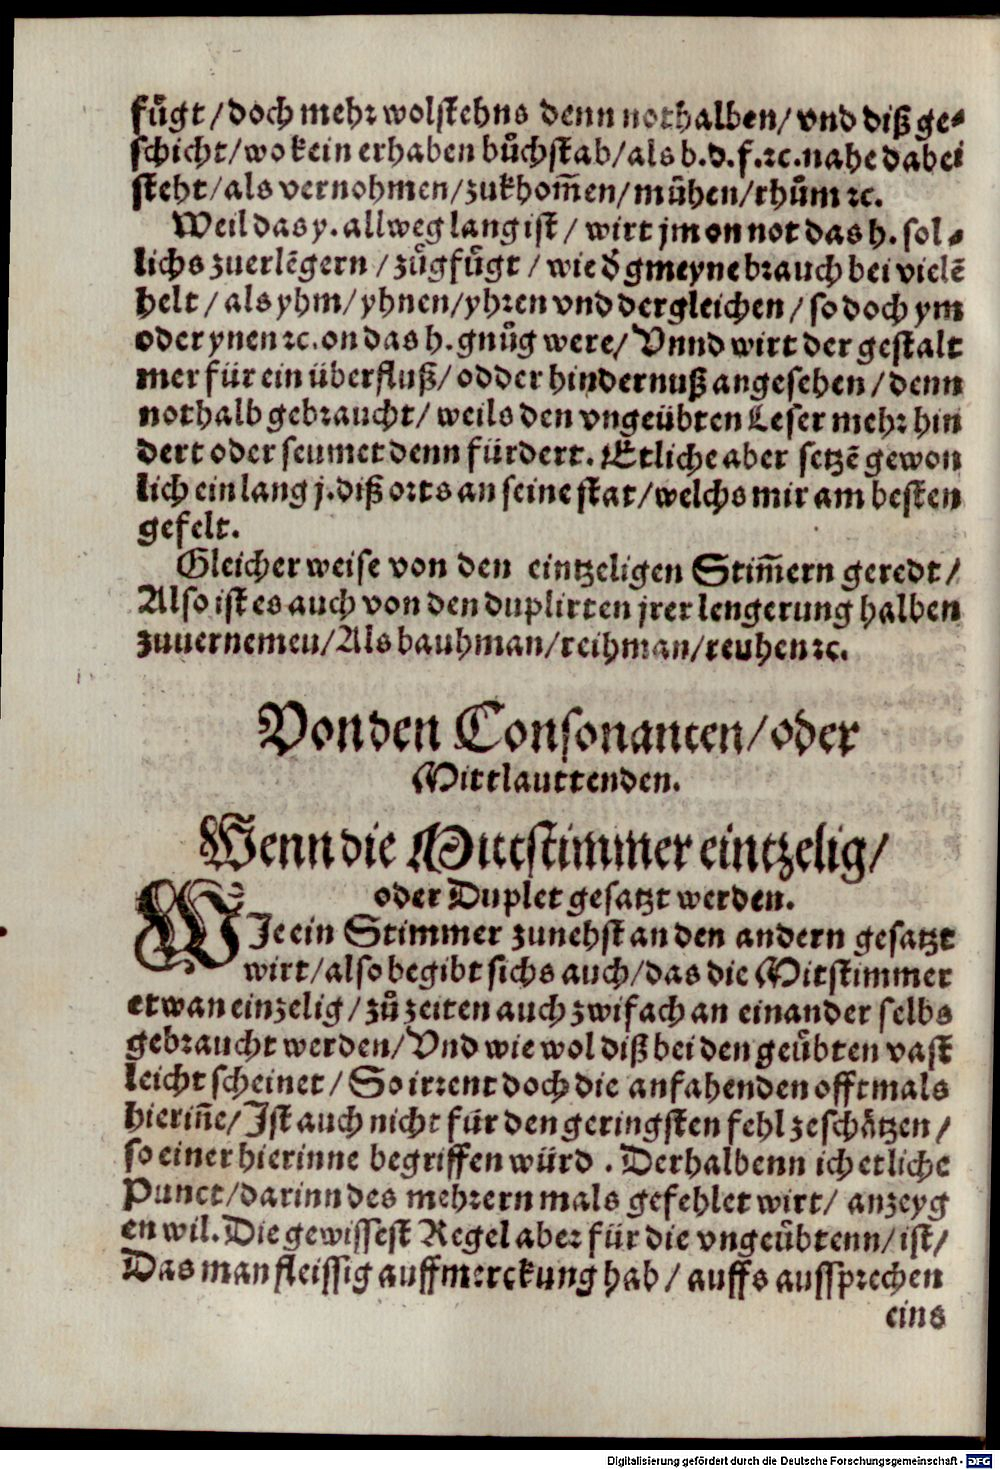 fuͤgt / doch mehr wolstehns denn nothalben / vnd diß ge⸗
schicht / wo kein erhaben buͤchstab / als b.d.f.ꝛc. nahe dabei
steht / als vernohmen / zukhom̃en / muͤhen / rhuͤm ꝛc.
Weil das y. allweg lang ist / wirt jm on not das h. sol⸗
lichs zuerlẽgern / zuͤgfuͤgt / wie d̕ gmeyne brauch bei vielẽ
helt / als yhm / yhnen / yhren vnd dergleichen / so doch ym
oder ynen ꝛc. on das h. gnuͤg were / Vnnd wirt der gestalt
mer für ein überfluß / odder hindernuß angesehen / denn
nothalb gebraucht / weils den vngeübten Leser mehr hin
dert oder seumet denn fürdert. Etliche aber setzẽ gewon
lich ein lang j. diß orts an seine stat / welchs mir am besten
gefelt.
Gleicher weise von den eintzeligen Stim̃ern geredt /
Also ist es auch von den duplirten jrer lengerung halben
zuuernemen / Als bauhman / reihman / reuhen ꝛc.
Von den Consonanten / oder
Mittlauttenden.
Wenn die Mittstimmer eintzelig /
oder Duplet gesatzt werden.
WJe ein Stimmer zunehst an den andern gesatzt
wirt / also begibt sichs auch / das die Mitstimmer
etwan einzelig / zuͤ zeiten auch zwifach an einander selbs
gebraucht werden / Vnd wie wol diß bei den geuͤbten vast
leicht scheinet / So irrent doch die anfahenden offtmals
hieriñe / Jst auch nicht für den geringsten fehl zeschaͤtzen /
so einer hierinne begriffen würd. Derhalbenn ich etliche
Punct / darinn des mehrern mals gefehlet wirt / anzeyg
en wil. Die gewissest Regel aber für die vngeuͤbtenn / ist /
Das man fleissig auffmerckung hab / auffs aussprechen
eins
Digitalisierung gefördert durch die Deutsche Forschungsgemeinschaft - DFG